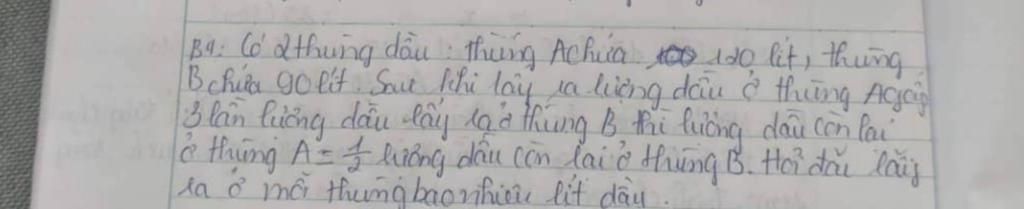 B9: Có 2 thùng dầu: thùng A chứa 120 lít, thùng
B chứa 90 lít. Sau khi lấy ra lượng dầu ở thùng A gấp
3 lần lượng dầu lấy ra ở thùng B thì lượng dầu còn lại
ở thùng A = 1/2 lượng dầu còn lại ở thùng B. Hỏi đã lấy
ra ở mỗi thùng bao nhiêu lít dầu.